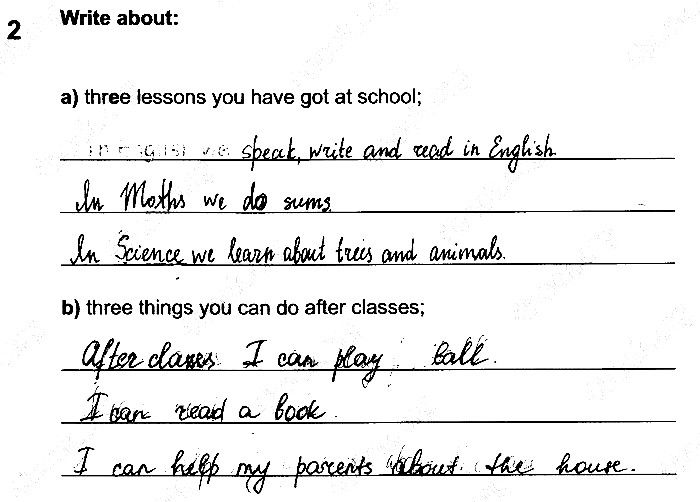 2 Write about:
a) three lessons you have got at school;
In English we speak, write and read in English
In Maths we do sums
In Science we learn about trees and animals.
b) three things you can do after classes;
After classes I can play ball.
I can read a book.
I can help my parents about the house.